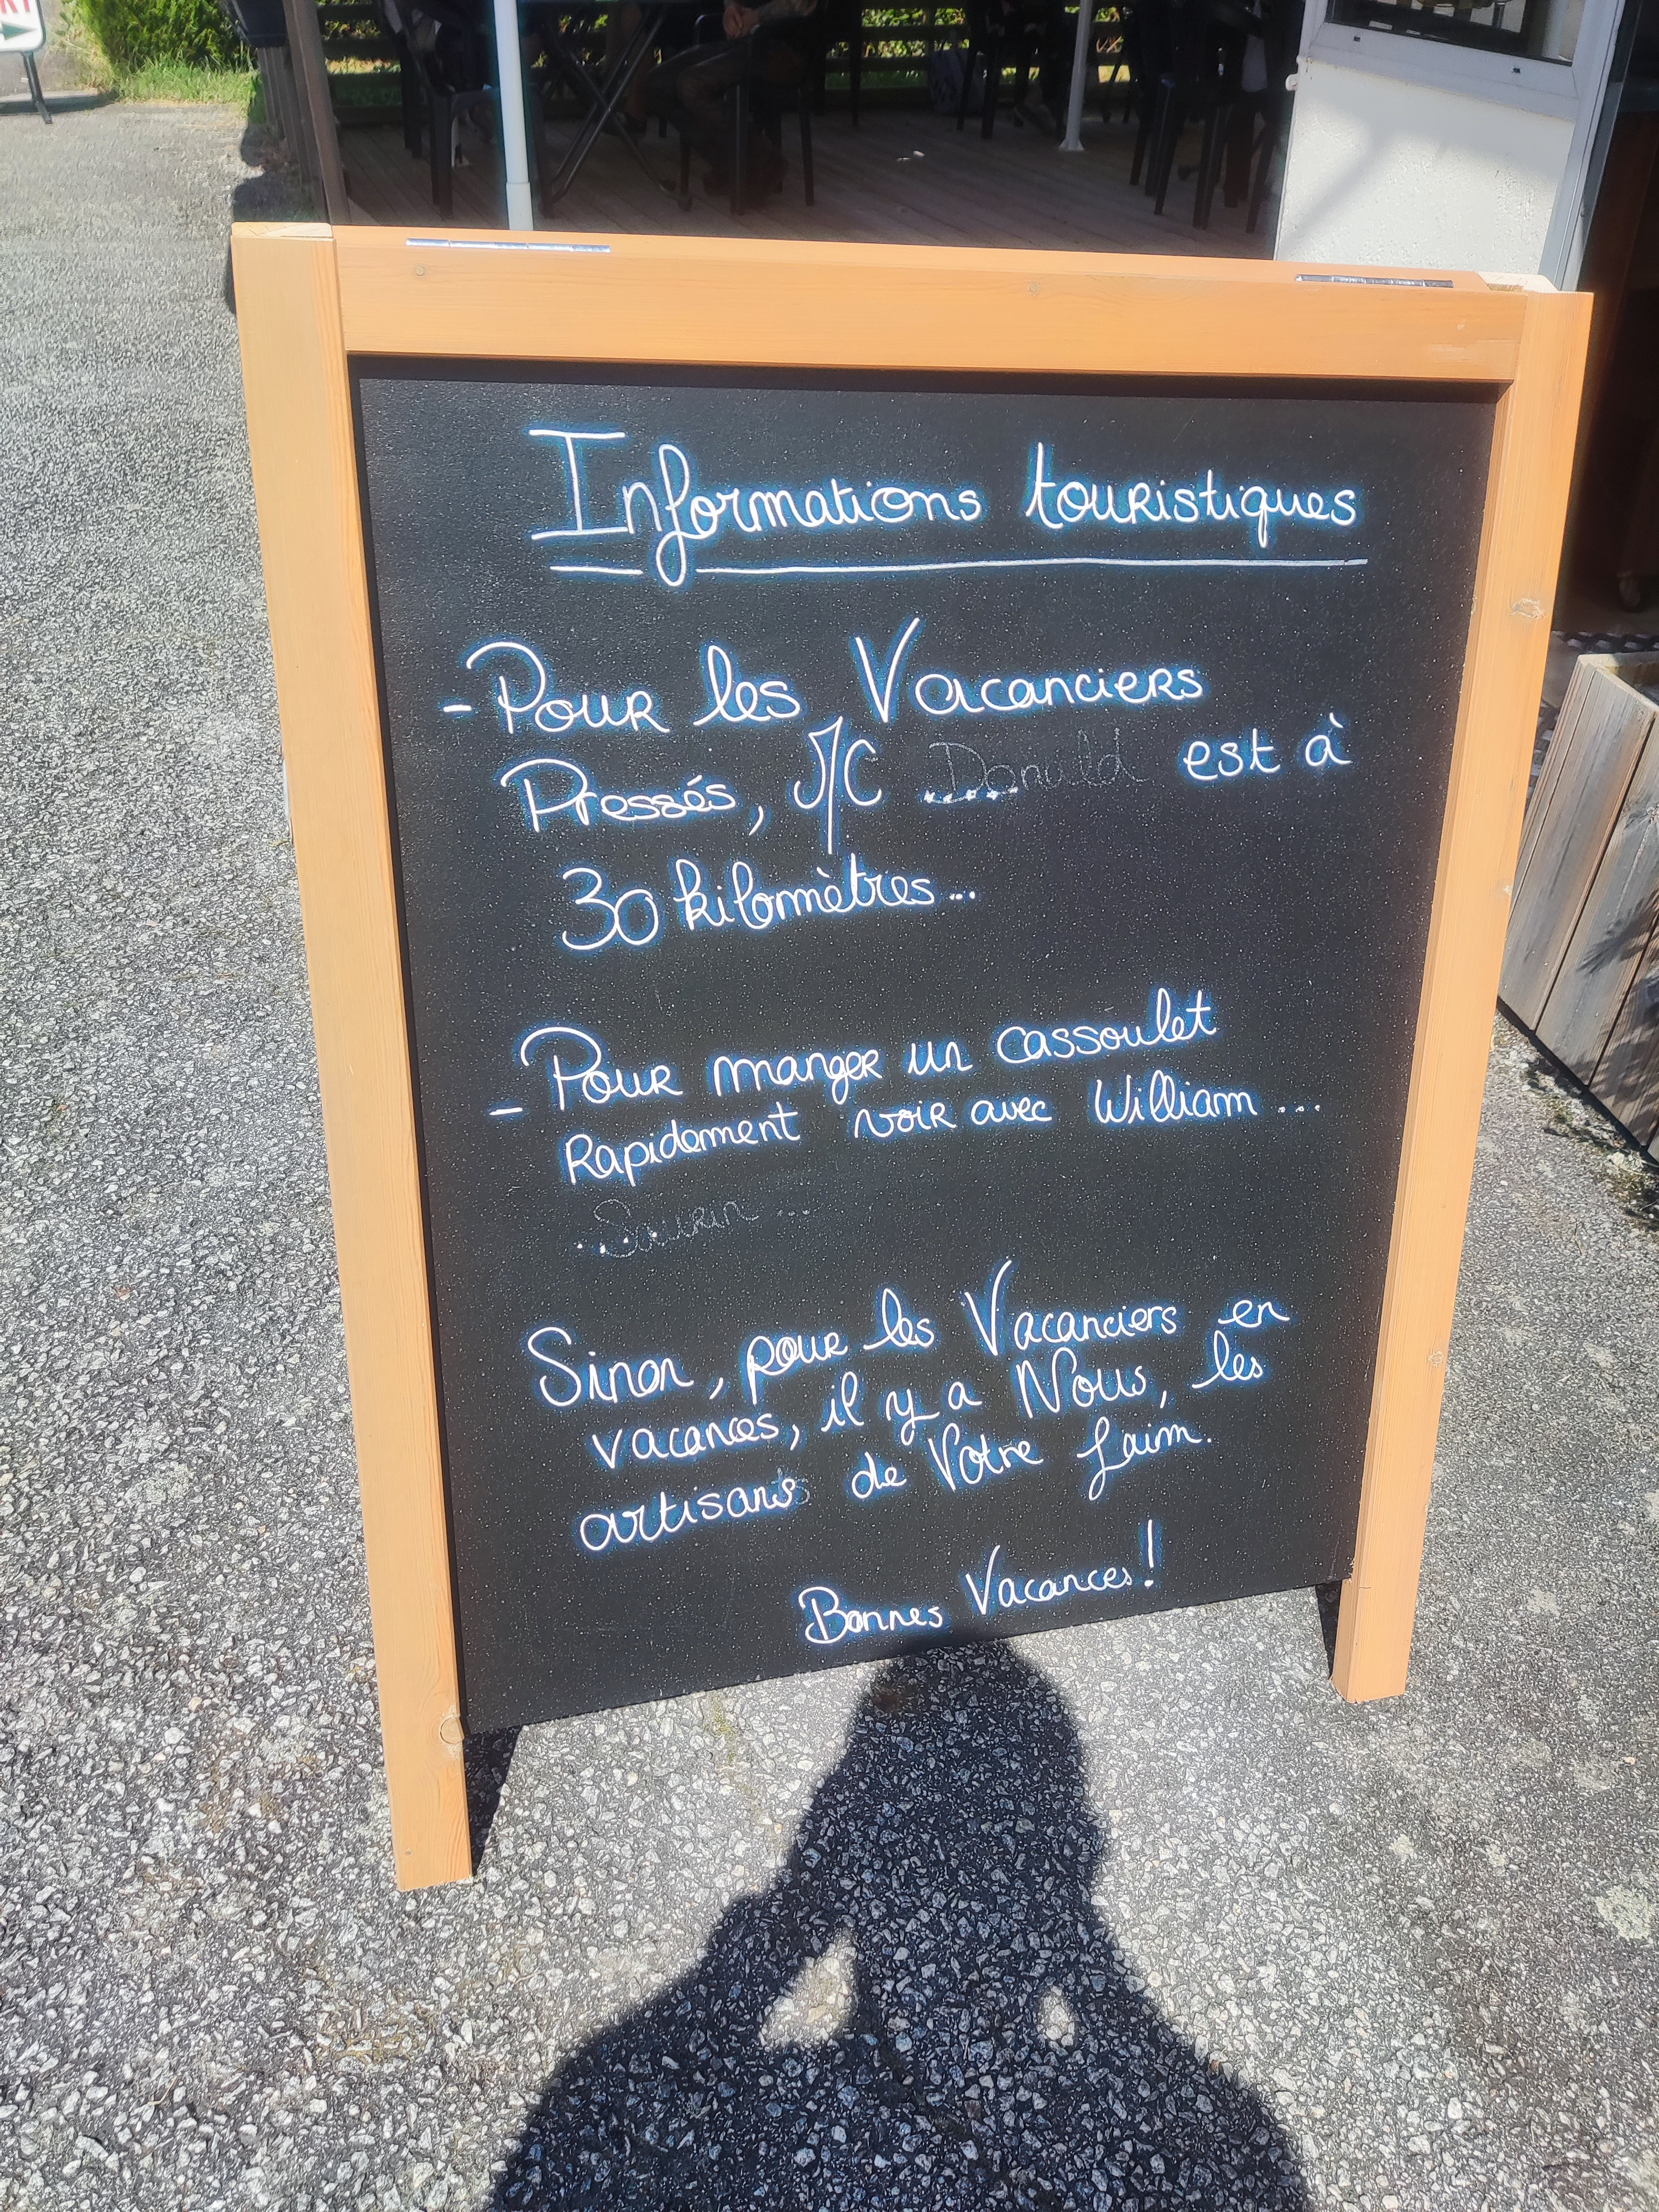 Informations touristiques
- Pour les Vacanciers
Pressés, Mc Donald est à
30 kilomètres...
- Pour manger un cassoulet
Rapidement voir avec William ...
... Saurin ...
Sinon, pour les Vacanciers en
vacances, il y a Nous, les
artisans de Votre faim.
Bonnes Vacances!